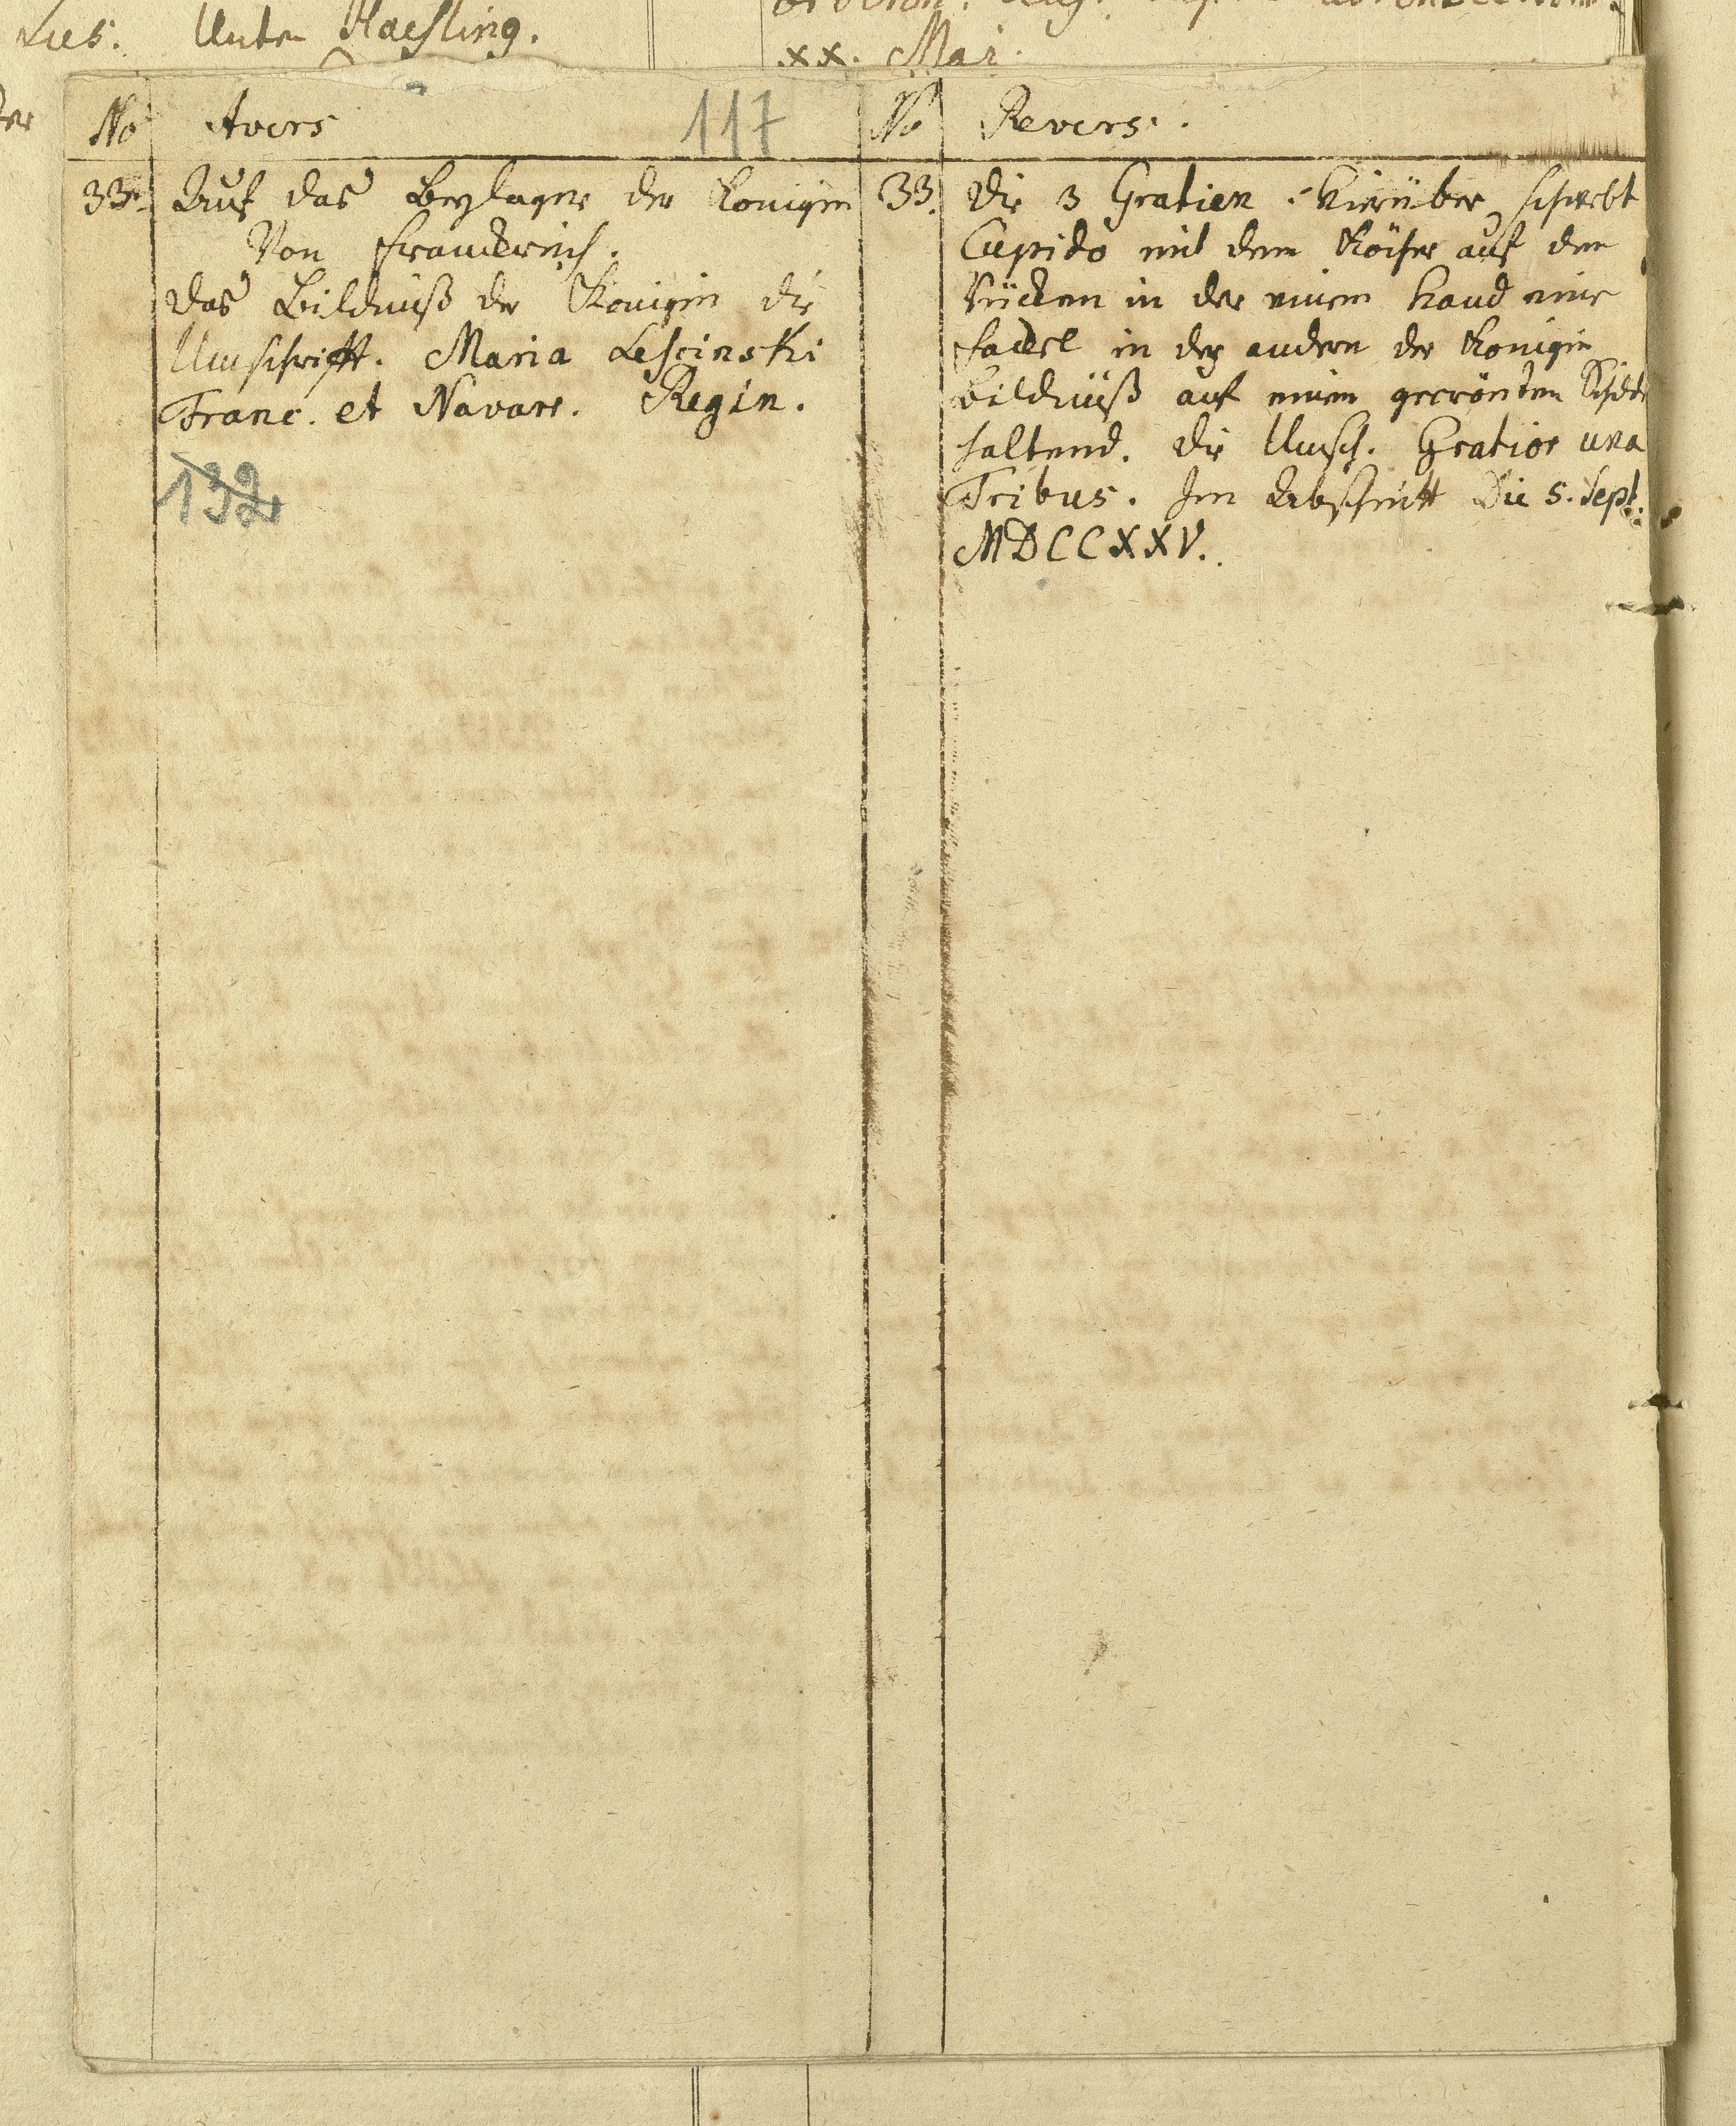 Lus. Unten Haesling.
xx. Mai.
No Avers 117 No Revers.
33. Auf das Beylager der Konigin
Von Franckreich.
das Bildnuß der Konigin die
Umschrifft. Maria Lescinski
Franc. et Navarr. Regin.
132
33. die 3 Gratien. hierüber schwebt
Cupido mit dem Köcher auf den
Rücken in der einen Hand eine
Fackel in der andern der Konigin
Bildnüß auf einem gecrönten Schild
haltend. die Umsch. Gratior una
Tribus. Im Abschnitt Die 5. Sept.
MDCCXXV.